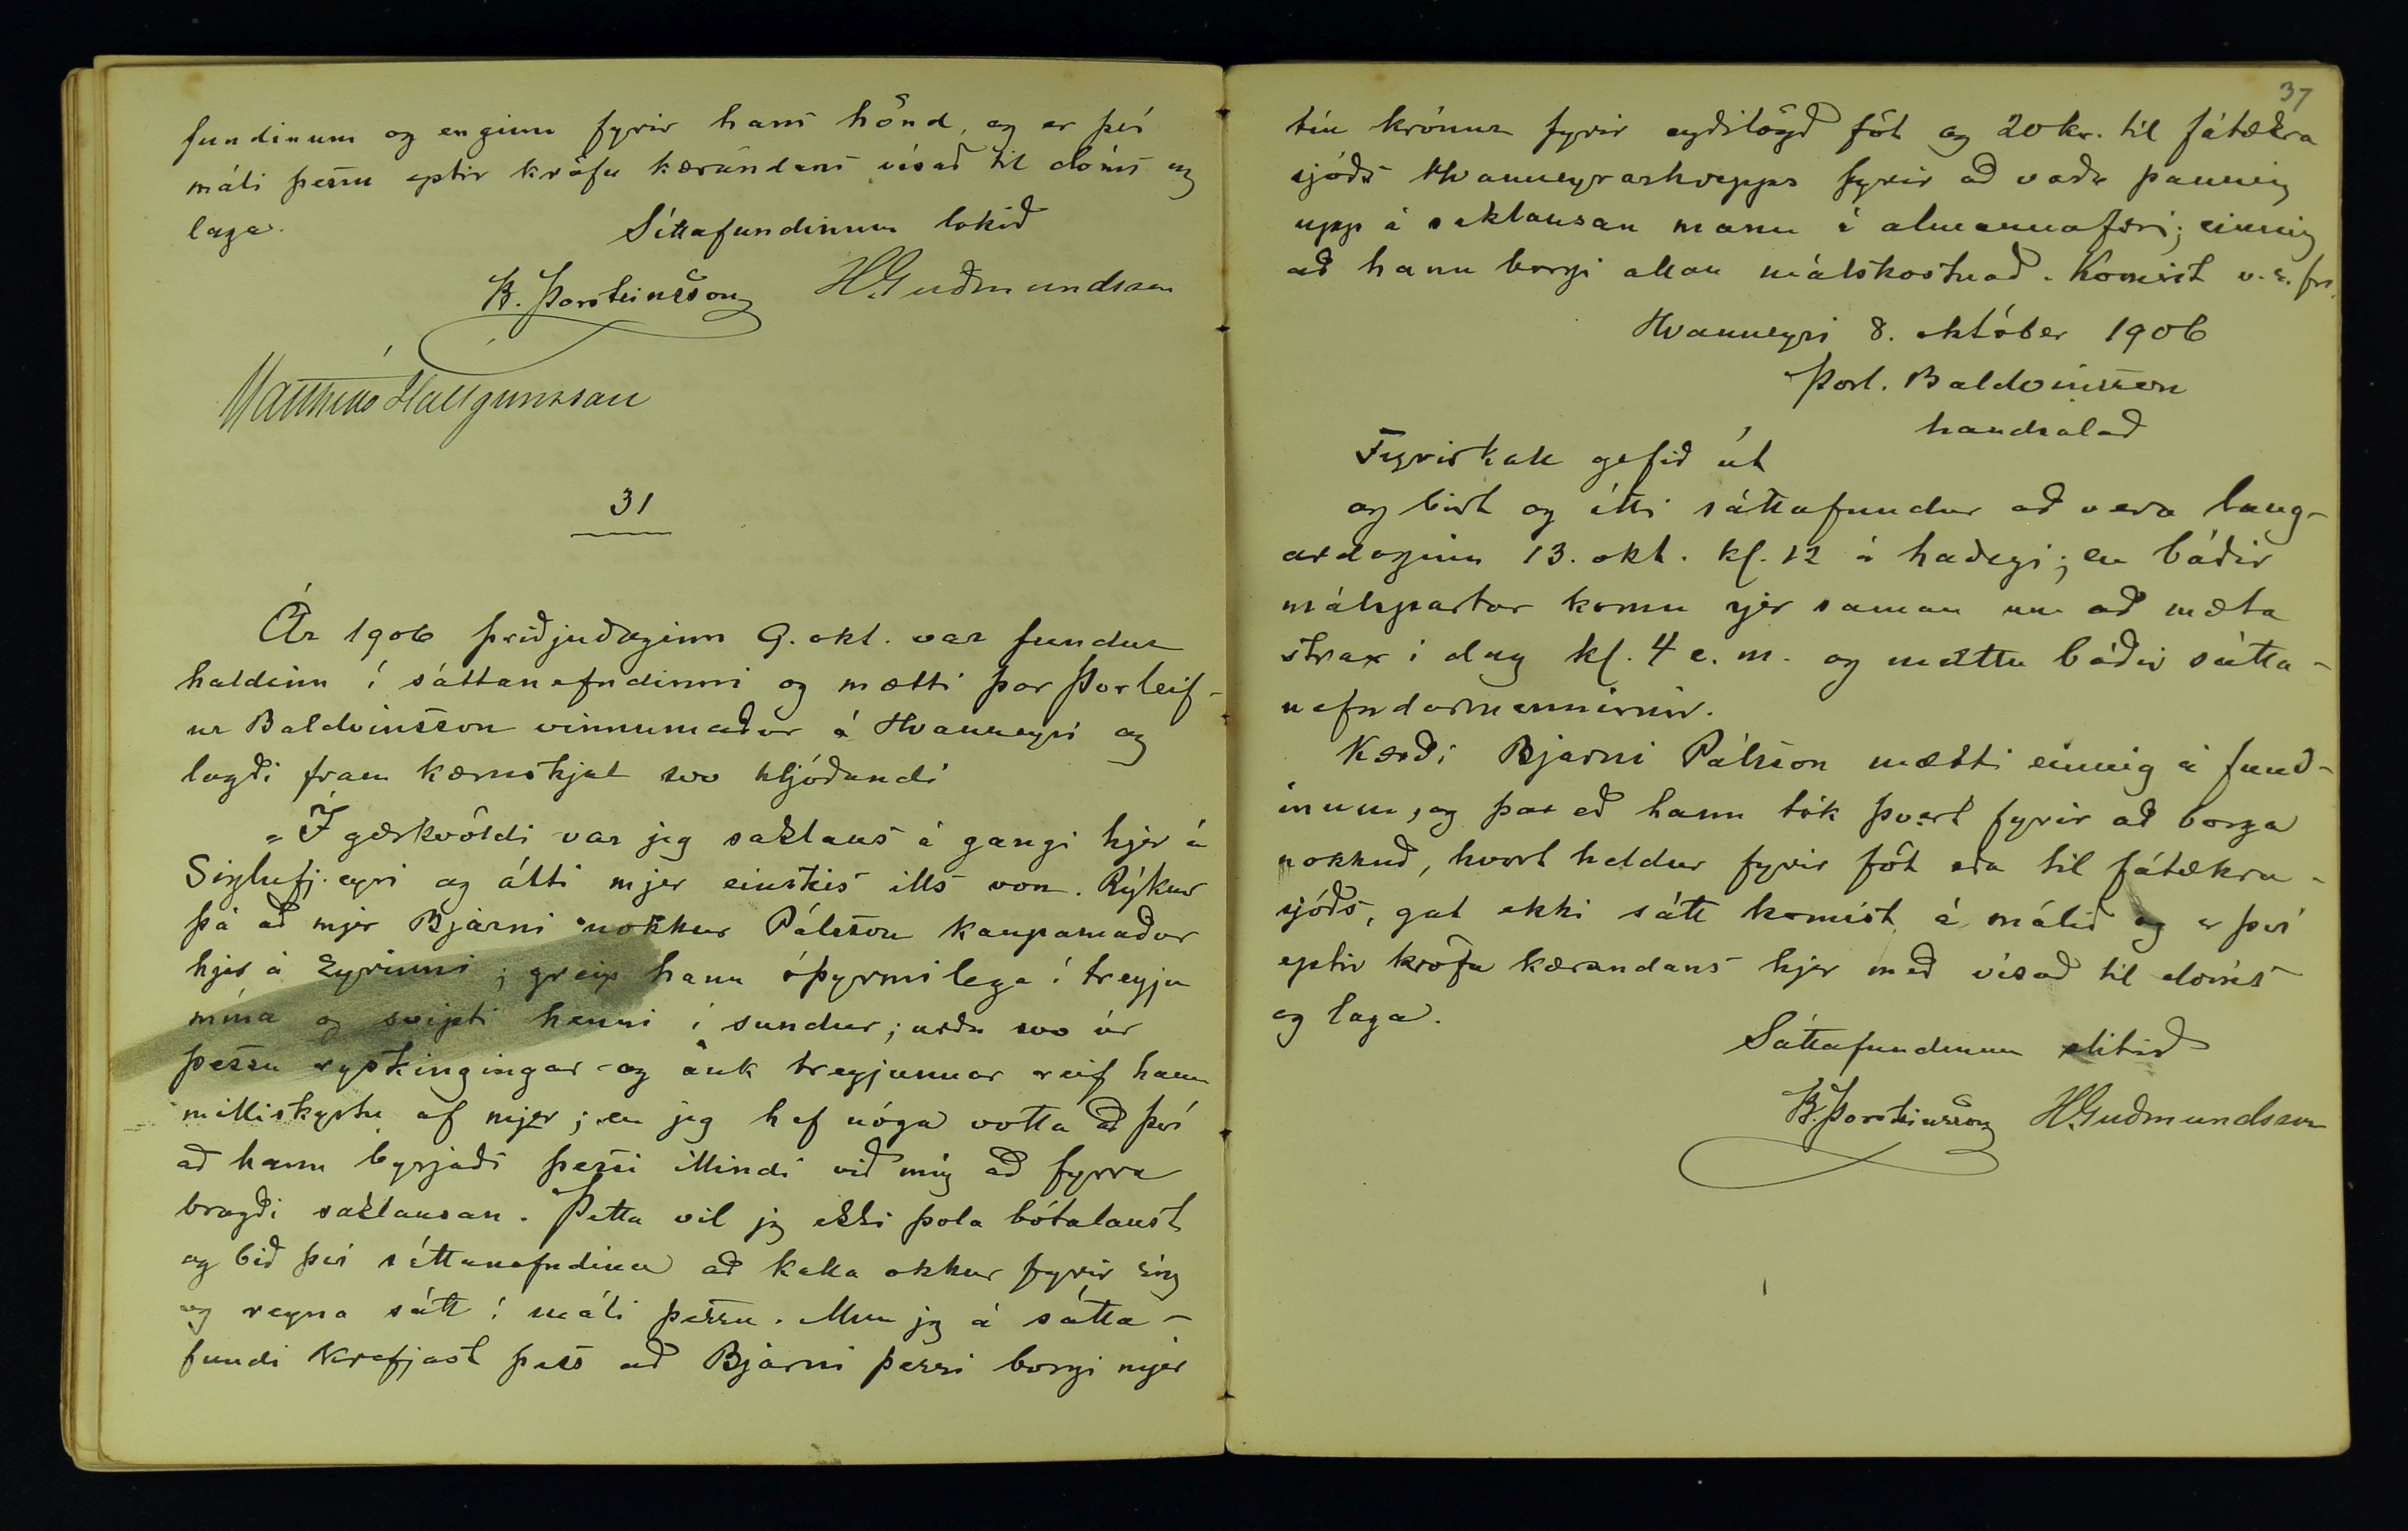 fundinum og enginn fyrir hans hönd, og er því
máli þessu eptir kröfu kærandans vísað til dóms og
laga.
Sáttafundinum lokið
B. Þorsteinsson HGuðmundsson
Matthías Hallgrímsson
31
Ár 1906 þriðjudaginn 9. okt. var fundur
haldinn í sáttanefndinni og mætti þar Þorleif-
ur Baldvinsson vinnumaður á Hvanneyri og
lagði fram kæruskjal svo hljóðandi
"Í gærkvöldi var jeg saklaus á gangi hjer á
Siglufj.eyri og átti mjer einskis ills von. Rýkur
þá að mjer Bjarni nokkur Pálsson kaupamaður
hjer á Eyrinni; greip hann óþyrmilega í treyju
mína og svipti henni í sundur; urðu svo úr
þessu ryskingingar og auk treyjunnar reif hann
milliskyrtu af mjer; en jeg hef nóga votta að því
að hann byrjaði þessi illindi við mig að fyrra
bragði saklausan. Þetta vil jeg ekki þola bótalaust
og bið því sáttanefndina að kalla okkur fyrir sig
og reyna sátt í máli þessu. Mun jeg á sátta-
fundi krefjast þess að Bjarni þessi borgi mjer
37
tíu krónur fyrir eyðilögð föt og 20 kr. til fátækra
sjóðs Hvanneyrarhrepps fyrir að vaða þannig
upp á saklausan mann á almannafæri; einnig
að hann borgi allan málskostnað. Komist v. s. frv.
Hvanneyri 8. október 1906
Þorl. Baldvinsson
handsalað
Fyrirkall gefið út
og birt og átti sáttafundur að vera laug-
ardaginn 13. okt. kl. 12 á hádegi; en báðir
málspartar komu sjer saman um að mæta
strax í dag kl. 4 e. m. og mættu báðir sátta-
nefndarmennirnir.
Kærði Bjarni Pálsson mætti einnig á fund-
inum, og þar eð hann tók þvert fyrir að borga
nokkuð, hvort heldur fyrir föt eða til fátækra-
sjóðs, gat ekki sátt komist á málið og er því
eptir kröfu kærandans hjer með vísað til dóms
og laga.
Sáttafundinum slitið
B. Þorsteinsson HGuðmundsson